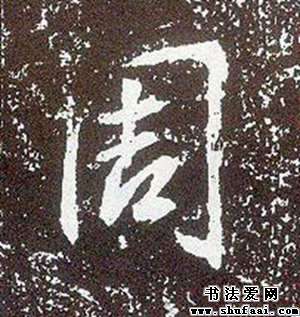 周
书法爱网
www.shufaai.com